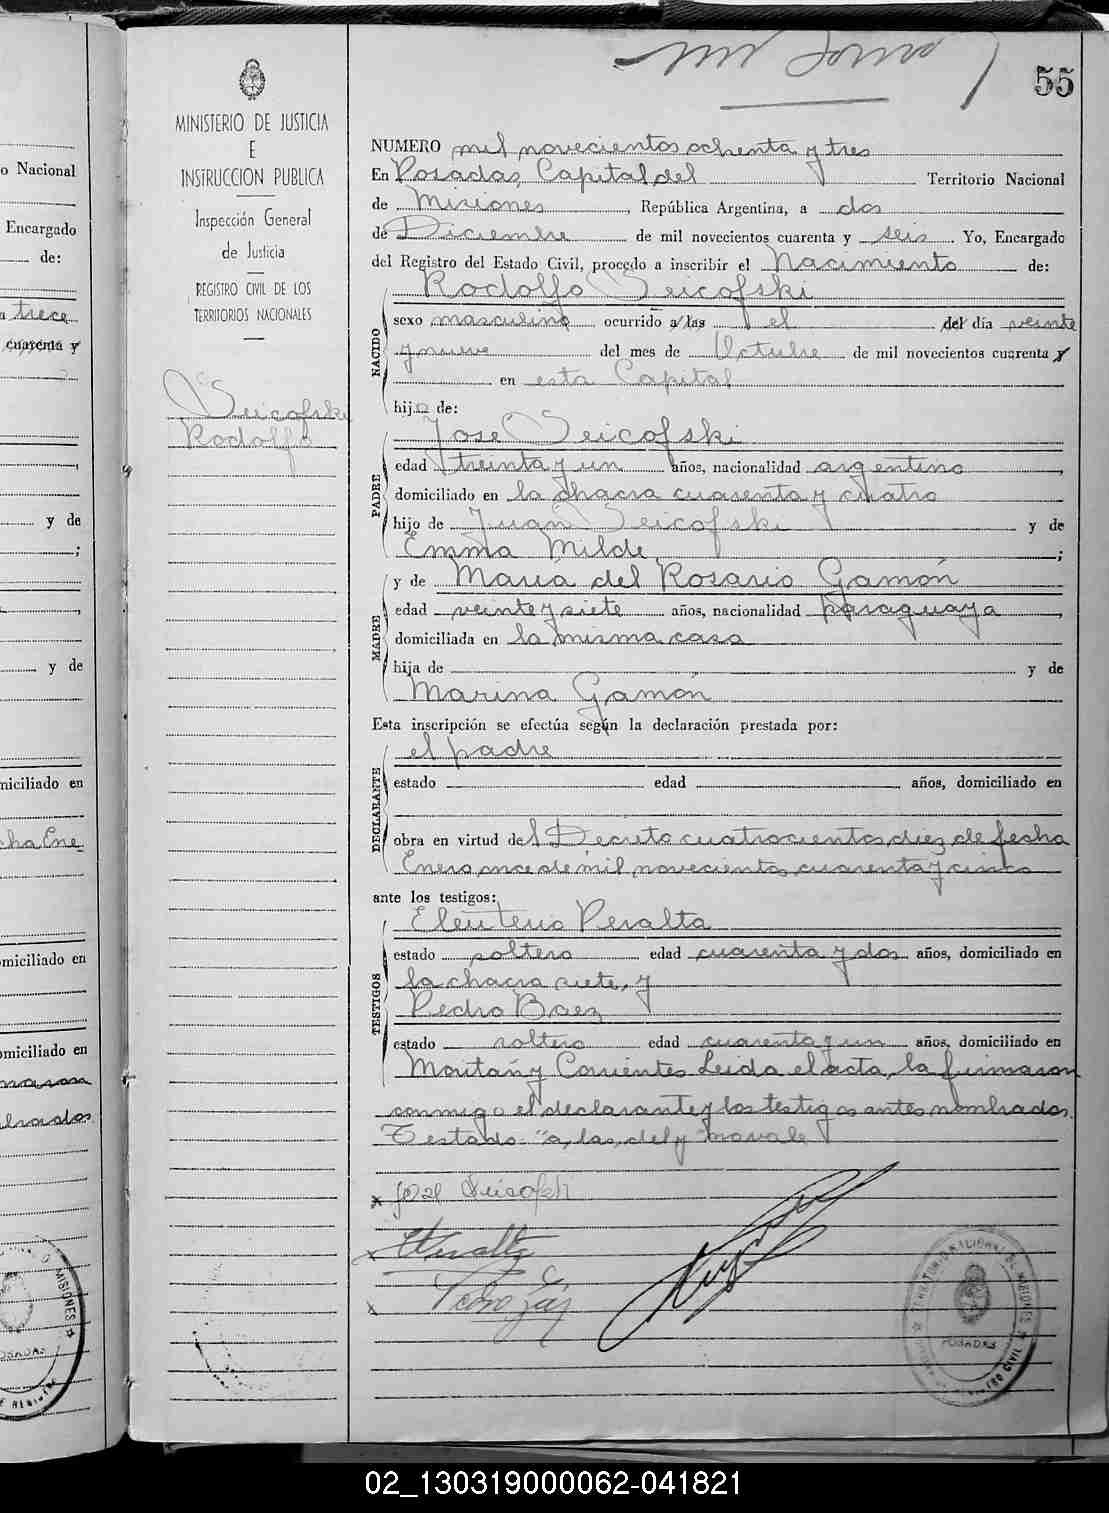 55
MINISTERIO DE JUSTICIA
E
INSTRUCCION PUBLICA
Inspección General
de Justicia
REGISTRO CIVIL DE LOS
TERRITORIOS NACIONALES
Seicofski
Rodolfo
NUMERO mil novecientos ochenta y tres
En Posadas, Capital del Territorio Nacional
de Misiones, República Argentina, a dos
de Diciembre de mil novecientos cuarenta y seis. Yo, Encargado
del Registro del Estado Civil, procedo a inscribir el Nacimiento de:
Rodolfo Seicofski
NACIDO
sexo masculino ocurrido a las el del día veinte
y nueve del mes de Octubre de mil novecientos cuarenta y
en esta Capital
hijo de:
José Seicofski
PADRE
edad treinta y un años, nacionalidad argentino,
domiciliado en la chacra cuarenta y cuatro
hijo de Juan Seicofski y de
Emma Milde;
y de María del Rosario Gamón
MADRE
edad veinte y siete años, nacionalidad paraguaya,
domiciliada en la misma casa
hija de y de
Marina Gamón
Esta inscripción se efectúa según la declaración prestada por:
el padre
DECLARANTE
estado edad años, domiciliado en
obra en virtud del Decreto cuatrocientos diez de fecha
Enero once de mil novecientos cuarenta y cinco
ante los testigos:
Eleuterio Peralta
TESTIGOS
estado soltero edad cuarenta y dos años, domiciliado en
la chacra siete, y
Pedro Baez
estado soltero edad cuarenta y un años, domiciliado en
Moritán y Corrientes. Leida el acta, la firmaron
conmigo el declarante y los testigos antes nombrados.
Testado "a, las, del y" no vale
José Seicofski
EPeralta
Pedro Báez
TERRITORIO NACIONAL DE MISIONES
POSADAS
REGISTRO CIVIL
o Nacional
Encargado
de:
trece
cuarenta y
y de
;
y de
miciliado en
cha Ene
miciliado en
omiciliado en
maron
brados
MISIONES
POSADAS
02_130319000062-041821